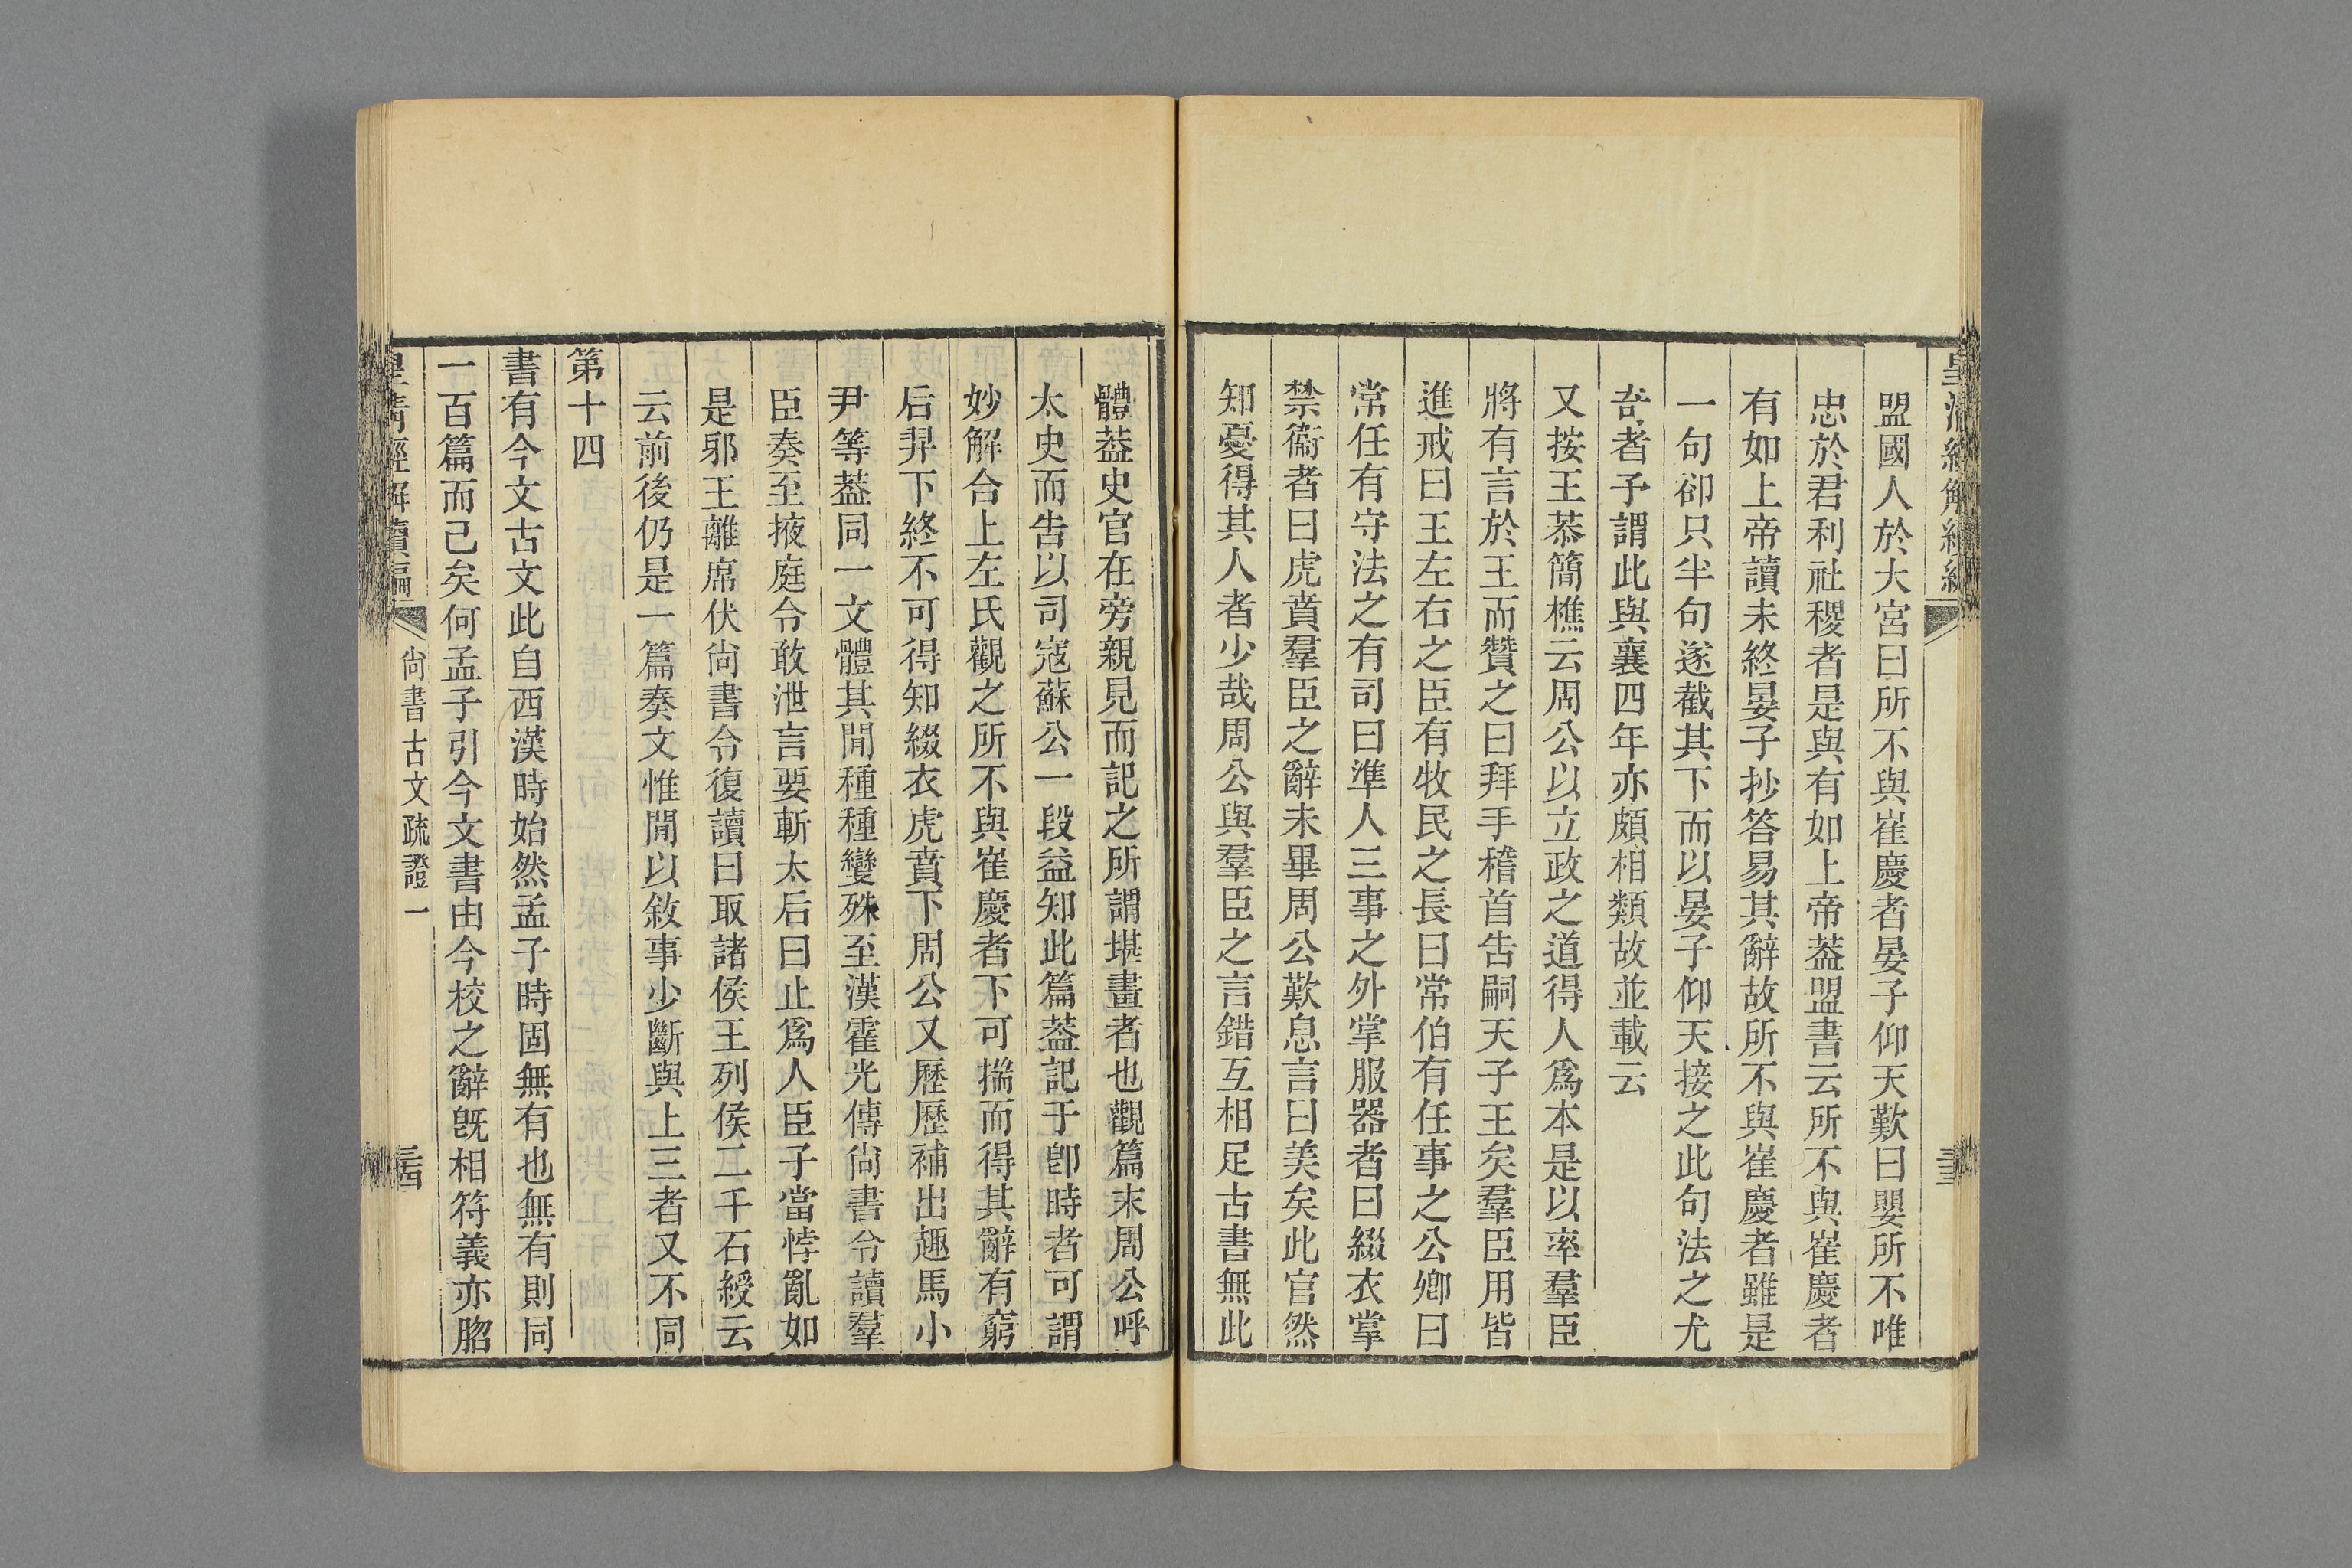 盟國人於大宮曰所不與崔慶者晏子仰天歎曰嬰所不唯
忠於君利社稷者是與有如上帝葢盟書云所不與崔慶者
有如上帝讀未終晏子抄答易其辭故所不與崔慶者雖是
一句卻只半句遂截其下而以晏子仰天接之此句法之尤
奇者予謂此與襄四年亦頗相類故並載云
又按王恭簡樵云周公以立政之道得人爲本是以率羣臣
將有言於王而贊之曰拜手稽首告嗣天子王矣羣臣用皆
進戒曰王左右之臣有牧民之長曰常伯有任事之公卿曰
常任有守法之有司曰準人三事之外掌服器者曰綴衣掌
禁衞者曰虎賁羣臣之辭未畢周公歎息言曰美矣此官然
知憂得其人者少哉周公與羣臣之言錯互相足古書無此
體葢史官在旁親見而記之所謂堪畫者也觀篇末周公呼
太史而告以司寇蘇公一段益知此篇葢記于卽時者可謂
妙解合上左氏觀之所不與崔慶者下可揣而得其辭有窮
后羿下終不可得知綴衣虎賁下周公又歷歷補出趣馬小
尹等葢同一文體其閒種種變殊至漢霍光傳尙書令讀羣
臣奏至掖庭令敢泄言要斬太后曰止爲人臣子當悖亂如
是邪王離席伏尙書令復讀曰取諸侯王列侯二千石綬云
云前後仍是一篇奏文惟閒以敘事少斷與上三者又不同
第十四
書有今文古文此自西漢時始然孟子時固無有也無有則同
一百篇而已矣何孟子引今文書由今校之辭旣相符義亦脗
皇淸經解續編
尙書古文疏證一